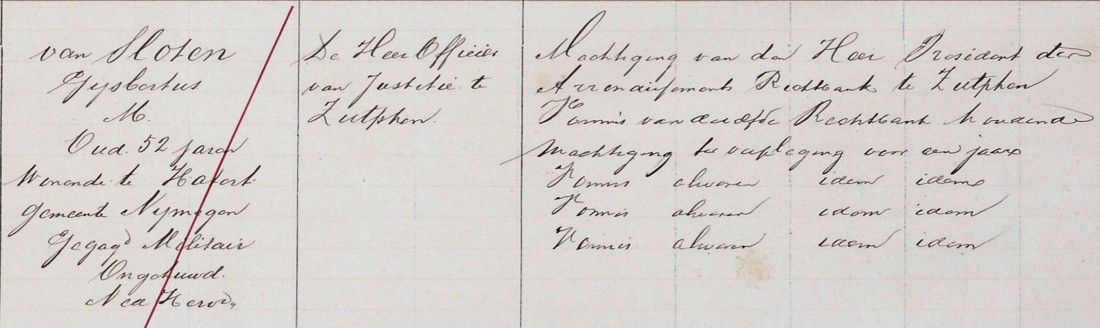 van Sloten
Gijsbertus
M.
Oud. 52 jaren
Wonende te Hatert
Gemeente Nijmegen
Gegagd Militair
Ongehuwd.
Ned Herv.
De Heer Officier
van Justitie te
Zutphen.
Machtiging van den Heer President der
Arrondissements Rechtbank te Zutphen
Vonnis van dezelfde Rechtbank houdende
Machtiging ter verpleging voor een jaar
Vonnis alvoren idem idem
Vonnis alvoren idem idem
Vonnis alvoren idem idem